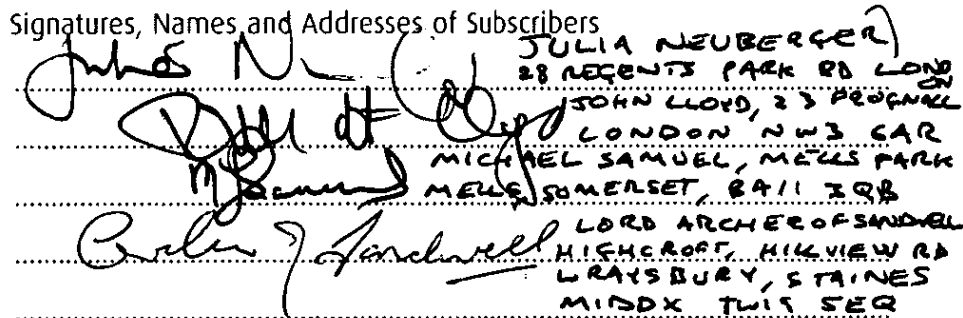 Signatures, Names and Addresses of Subscribers
JULIA NEUBERGER)
28 REGENTS PARK RD LONDON
JOHN LLOYD, 23 FROGNALL
LONDON NW3 6AR
MICHAEL SAMUEL, MELLS PARK
MELLS, SOMERSET, BA11 3QB
LORD ARCHER OF SANDWELL
Archer of Sandwell
HIGHCROFT, HILLVIEW RD
WRAYSBURY, STAINES
MIDDX TW19 5EQ